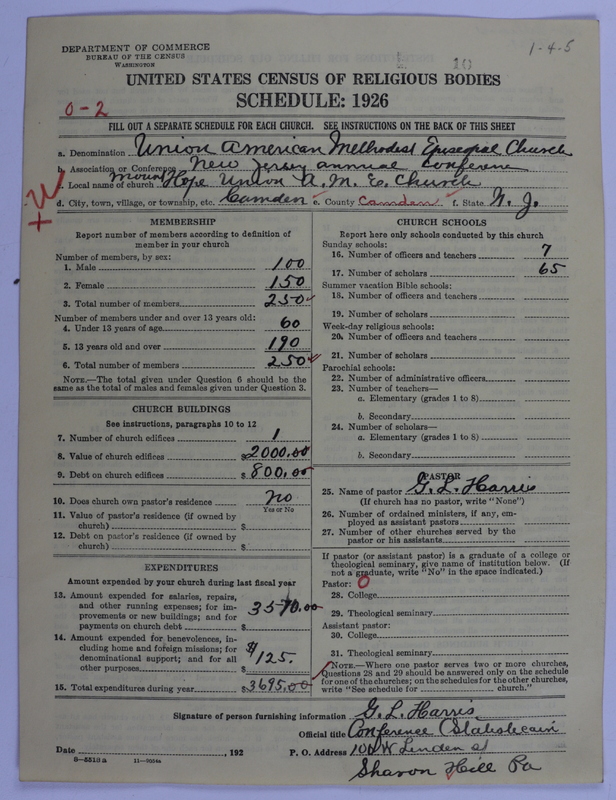 DEPARTMENT OF COMMERCE
BUREAU OF THE CENSUS
WASHINGTON
10
1-4-5
UNITED STATES CENSUS OF RELIGIOUS BODIES
SCHEDULE: 1926
0-2
FILL OUT A SEPARATE SCHEDULE FOR EACH CHURCH. SEE INSTRUCTIONS ON THE BACK OF THIS SHEET
a. Denomination Union American Methodist Episcopal Church
b. Association or Conference New Jersey annual Conference
c. Local name of church Mount Hope Union A. M. E. Church
d. City, town, village, or township, etc. Camden e. County Camden f. State N. J.
MEMBERSHIP
Report number of members according to definition of member in your church
Number of members, by sex:
1. Male 100
2. Female 150
3. Total number of members 250
Number of members under and over 13 years old:
4. Under 13 years of age 60
5. 13 years old and over 190
6. Total number of members 250
NOTE.—The total given under Question 6 should be
same as the total of males and females given under Question 3.
CHURCH BUILDINGS
See instructions, paragraphs 10 to 12
7. Number of church edifices 1
8. Value of church edifices $2000.00
9. Debt on church edifices $800.00
10. Does church own pastor's residence no
Yes or No
11. Value of pastor's residence (if owned by
church) $
12. Debt on pastor's residence (if owned by
church) $
EXPENDITURES
Amount expended by your church during last fiscal year
13. Amount expended for salaries, repairs,
and other running expenses; for im-
provements or new buildings; and for
payments on church debt $ 3570.00
14. Amount expended for benevolences, in-
cluding home and foreign missions; for
denominational support; and for all
other purposes $125.
15. Total expenditures during year $3695.00
CHURCH SCHOOLS
Report here only schools conducted by this church
Sunday schools:
16. Number of officers and teachers 7
17. Number of scholars 65
Summer vacation Bible schools:
18. Number of officers and teachers
19. Number of scholars
Week-day religious schools:
20. Number of officers and teachers
21. Number of scholars
Parochial schools:
22. Number of administrative officers
23. Number of teachers—
a. Elementary (grades 1 to 8)
b. Secondary
24. Number of scholars—
a. Elementary (grades 1 to 8)
b. Secondary
PASTOR
25. Name of pastor G. L. Harris
(If church has no pastor, write "None")
26. Number of ordained ministers, if any, em-
ployed as assistant pastors
27. Number of other churches served by the
pastor or his assistants
If pastor (or assistant pastor) is a graduate of a college or
theological seminary, give name of institution below. (If
not a graduate, write "No" in the space indicated.)
Pastor: 0
28. College
29. Theological seminary
Assistant pastor:
30. College
31. Theological seminary
NOTE.—Where one pastor serves two or more churches,
Questions 28 and 29 should be answered only on the schedule
for one of the churches; on the schedules for the other churches,
write "See schedule for church."
Signature of person furnishing information G. L. Harris
Official title Conference
Date , 192 P. O. Address W Linden st
8-5513a 11-9034a
Sharon Hill Pa